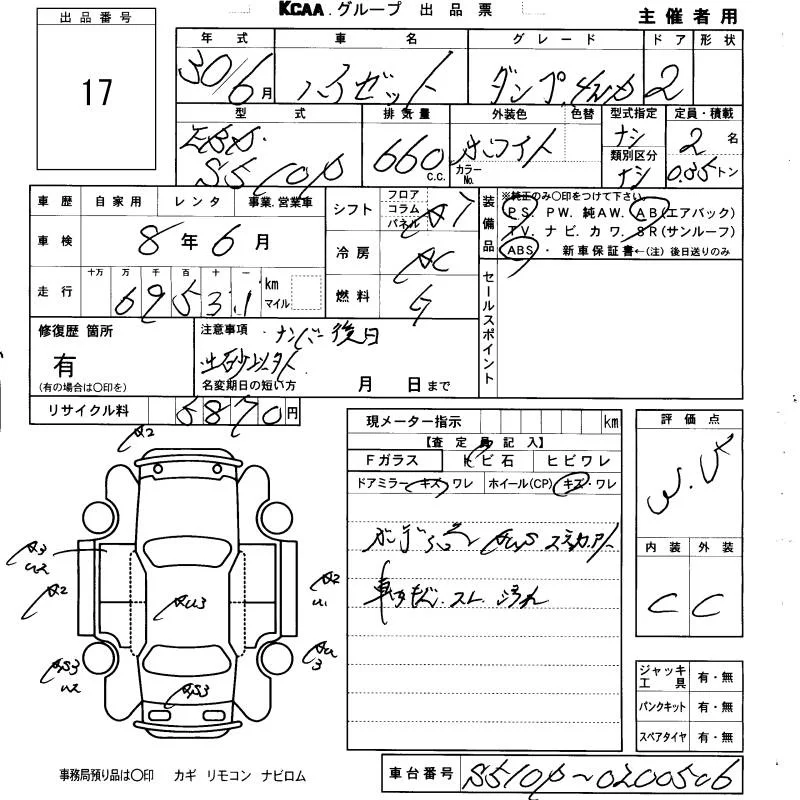 KCAA.グループ 出品票
主催者用
出品番号
17
年式 車名 グレード ドア 形状
30/6月 ハイゼット ダンプ 4WD 2
型式 排気量 外装色 色替 型式指定 定員・積載
EBD-
S510P 660 C.C. ホワイト カラーNo. ナシ 2名
類別区分
ナシ 0.35トン
車歴 自家用 レンタ 事業.営業車
シフト フロア コラム パネル A7
装備品 ※純正のみ〇印をつけて下さい。
PS. PW. 純AW. AB(エアバック)
TV. ナビ. カワ. SR(サンルーフ)
ABS・ 新車保証書←(注) 後日送りのみ
車検 8年6月
冷房 AC
走行 十万 万 千 百 十 一
69531 km マイル
燃料 G
セールスポイント
修復歴 箇所
有
(有の場合は〇印を)
注意事項 ・ナンバー後日
土砂以外
名変期日の短い方 月 日まで
リサイクル料 5870円
現メーター指示 km
【査定員記入】
Fガラス トビ石 ヒビワレ
ドアミラー キズ・ワレ ホイール(CP) キズ・ワレ
車内
スレ 汚れ
評価点
内装 外装
C C
A2
A3
U2
A2
AU3
A2
U1
AS3
U2
AU
3
AS3
ジャッキ工具 有・無
パンクキット 有・無
スペアタイヤ 有・無
事務局預り品は〇印 カギ リモコン ナビロム
車台番号 S510P~0200506